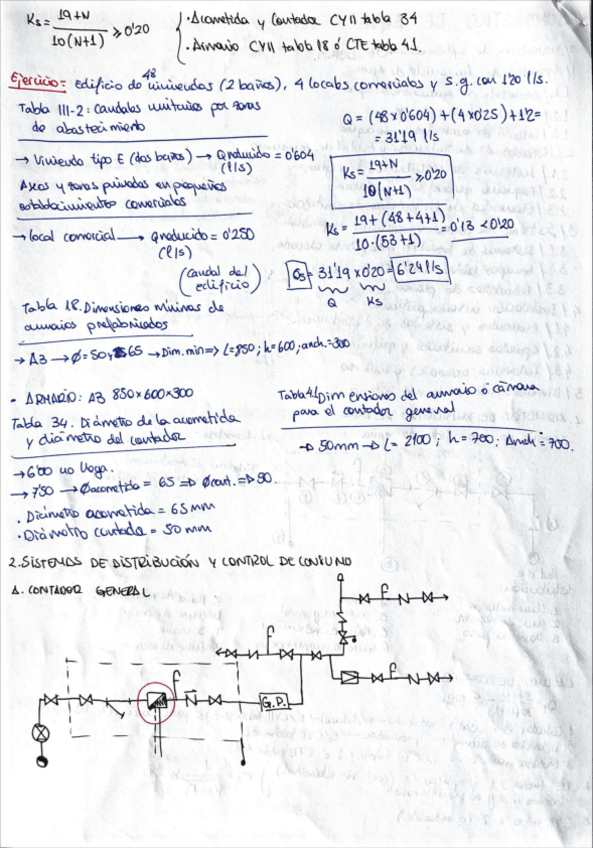 Ks = 19+N / 10(N+1) ≥ 0'20
· Acometida y Contador CYII tabla 34
· Armario CYII tabla 18 ó CTE tabla 4.1.
Ejercicio: edificio de 48 viviendas (2 baños), 4 locales comerciales y s.g. con 1'20 l/s.
Tabla III-2: Caudales unitarios por zonas
de abastecimiento
→ Vivienda tipo E (dos baños) → Qreducido = 0'604
(l/s)
Aseos y zonas privadas en pequeños
establecimientos comerciales
→ local comercial → Qreducido = 0'250
(l/s)
Q = (48 x 0'604) + (4 x 0'25) + 1'2 =
= 31'19 l/s
Ks = 19+N / 10(N+1) ≥ 0'20
Ks = 19+(48+4+1) / 10·(53+1) = 0'13 < 0'20
(Caudal del edificio)
Qs = 31'19 x 0'20 = 6'24 l/s
Q Ks
Tabla 18. Dimensiones mínimas de
armarios prefabricados
→ A3 → Ø = 50 y 65 → Dim. min => L=850; h=600; anch.=300
· ARMARIO: A3 850x600x300
Tabla 34. Diámetro de la acometida
y diámetro del contador
→ 6'00 no llega.
→ 7'50 → Øacometida = 65 => Øcont. => 50.
· Diámetro acometida = 65 mm
· Diámetro contador = 50 mm
Tabla 4.1 Dimensiones del armario ó cámara
para el contador general
→ 50mm → L = 2100; h = 700; Anch = 700.
2. SISTEMAS DE DISTRIBUCIÓN Y CONTROL DE CONSUMO
A. CONTADOR GENERAL
G.P.